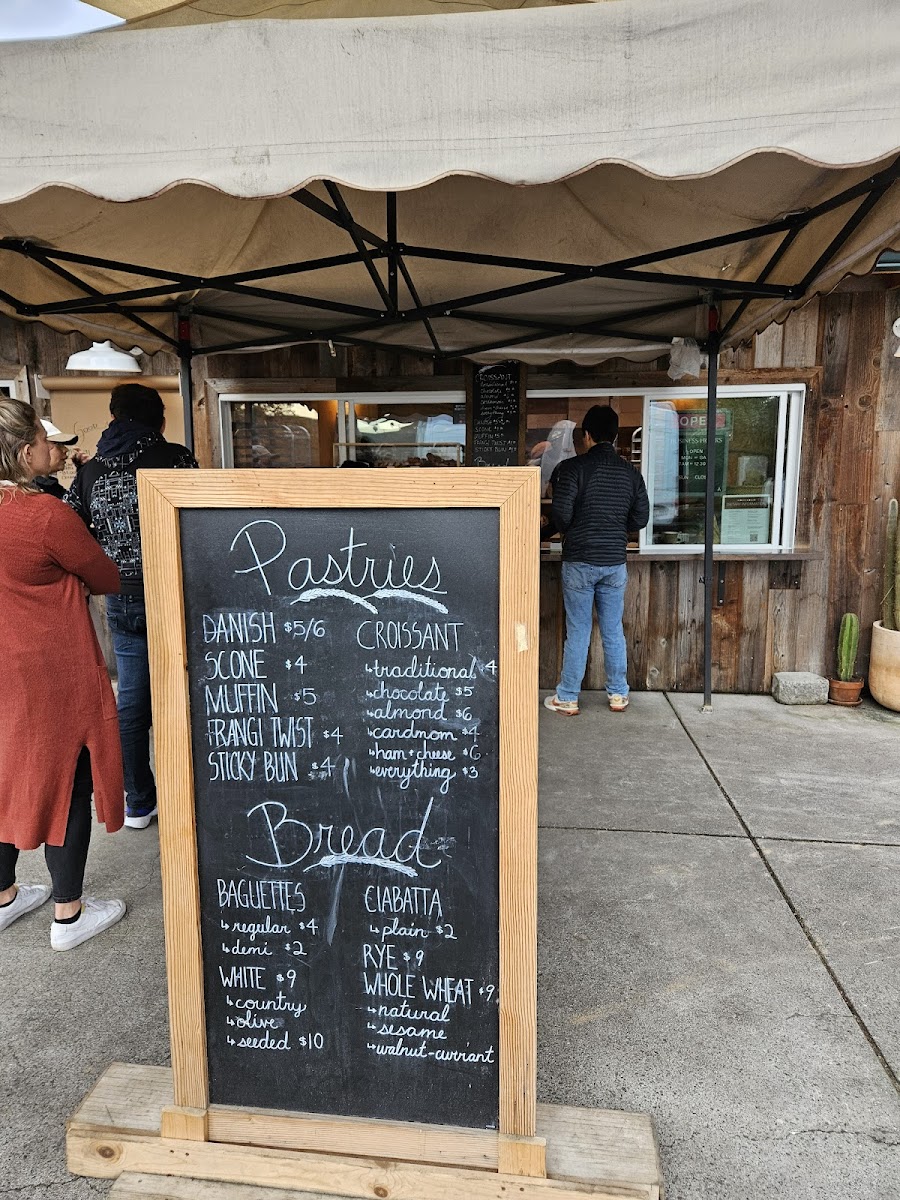 Pastries
DANISH $5/6
SCONE $4
MUFFIN $5
FRANGI TWIST $4
STICKY BUN $4
CROISSANT
↳traditional $4
↳chocolate $5
↳almond $6
↳cardmom $4
↳ham + cheese $6
↳everything $3
Bread
BAGUETTES
↳regular $4
↳demi $2
WHITE $9
↳country
↳olive
↳seeded $10
CIABATTA
↳plain $2
RYE $9
WHOLE WHEAT $9
↳natural
↳sesame
↳walnut-currant
CROISSANT
SCONE
MUFFIN
FRANGI TWIST
STICKY BUN
OPEN